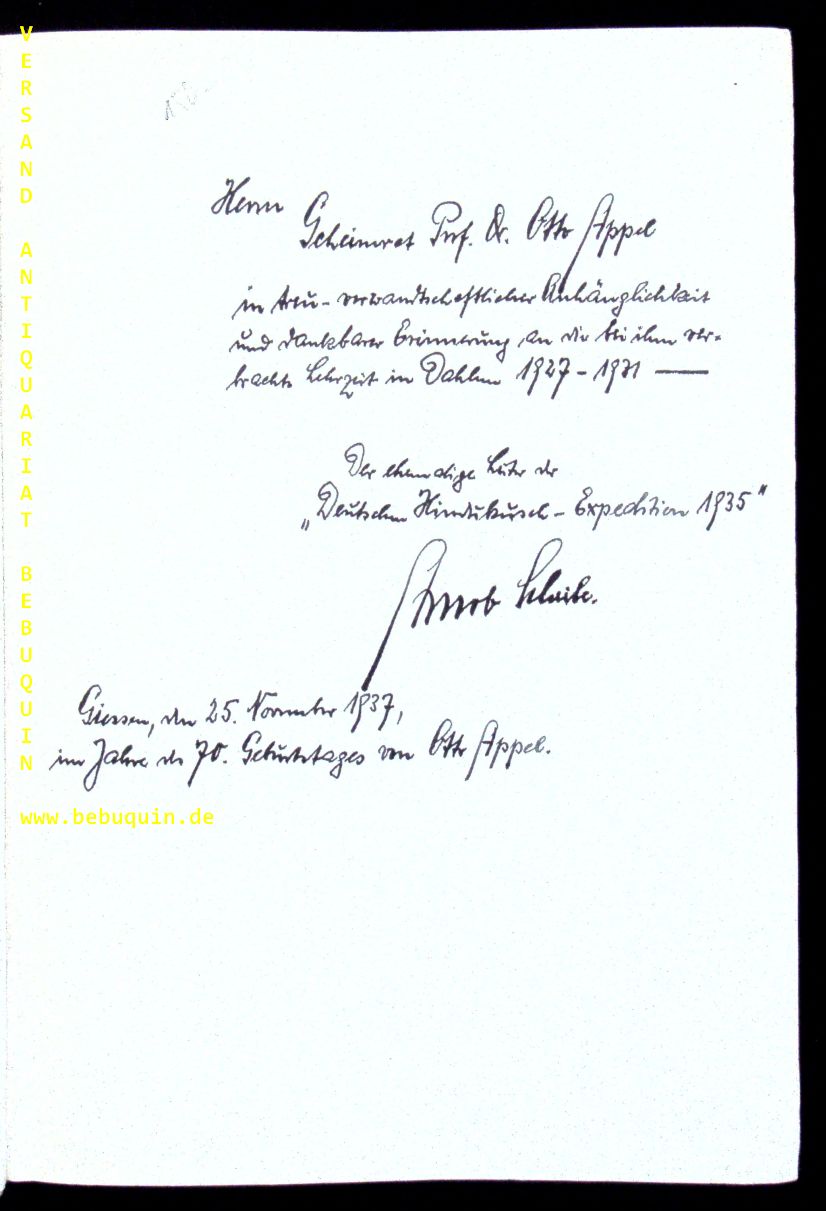 Herrn
Geheimrat Prof. Dr. Otto Appel
in treu-verwandtschaftlicher Anhänglichkeit
und dankbarer Erinnerung an die bei ihm ver-
brachte Lehrzeit in Dahlem 1927 - 1931 —
Der ehemalige Leiter der
„Deutschen Hindukusch - Expedition 1935"
Arnold Scheibe.
Giessen, den 25. November 1937,
im Jahre des 70. Geburtstages von Otto Appel.
VERSAND ANTIQUARIAT BEBUQUIN
www.bebuquin.de